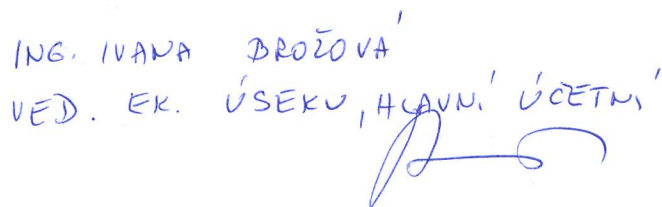 ING. IVANA BROŽOVÁ
VED. EK. ÚSEKU, HLAVNÍ ÚČETNÍ